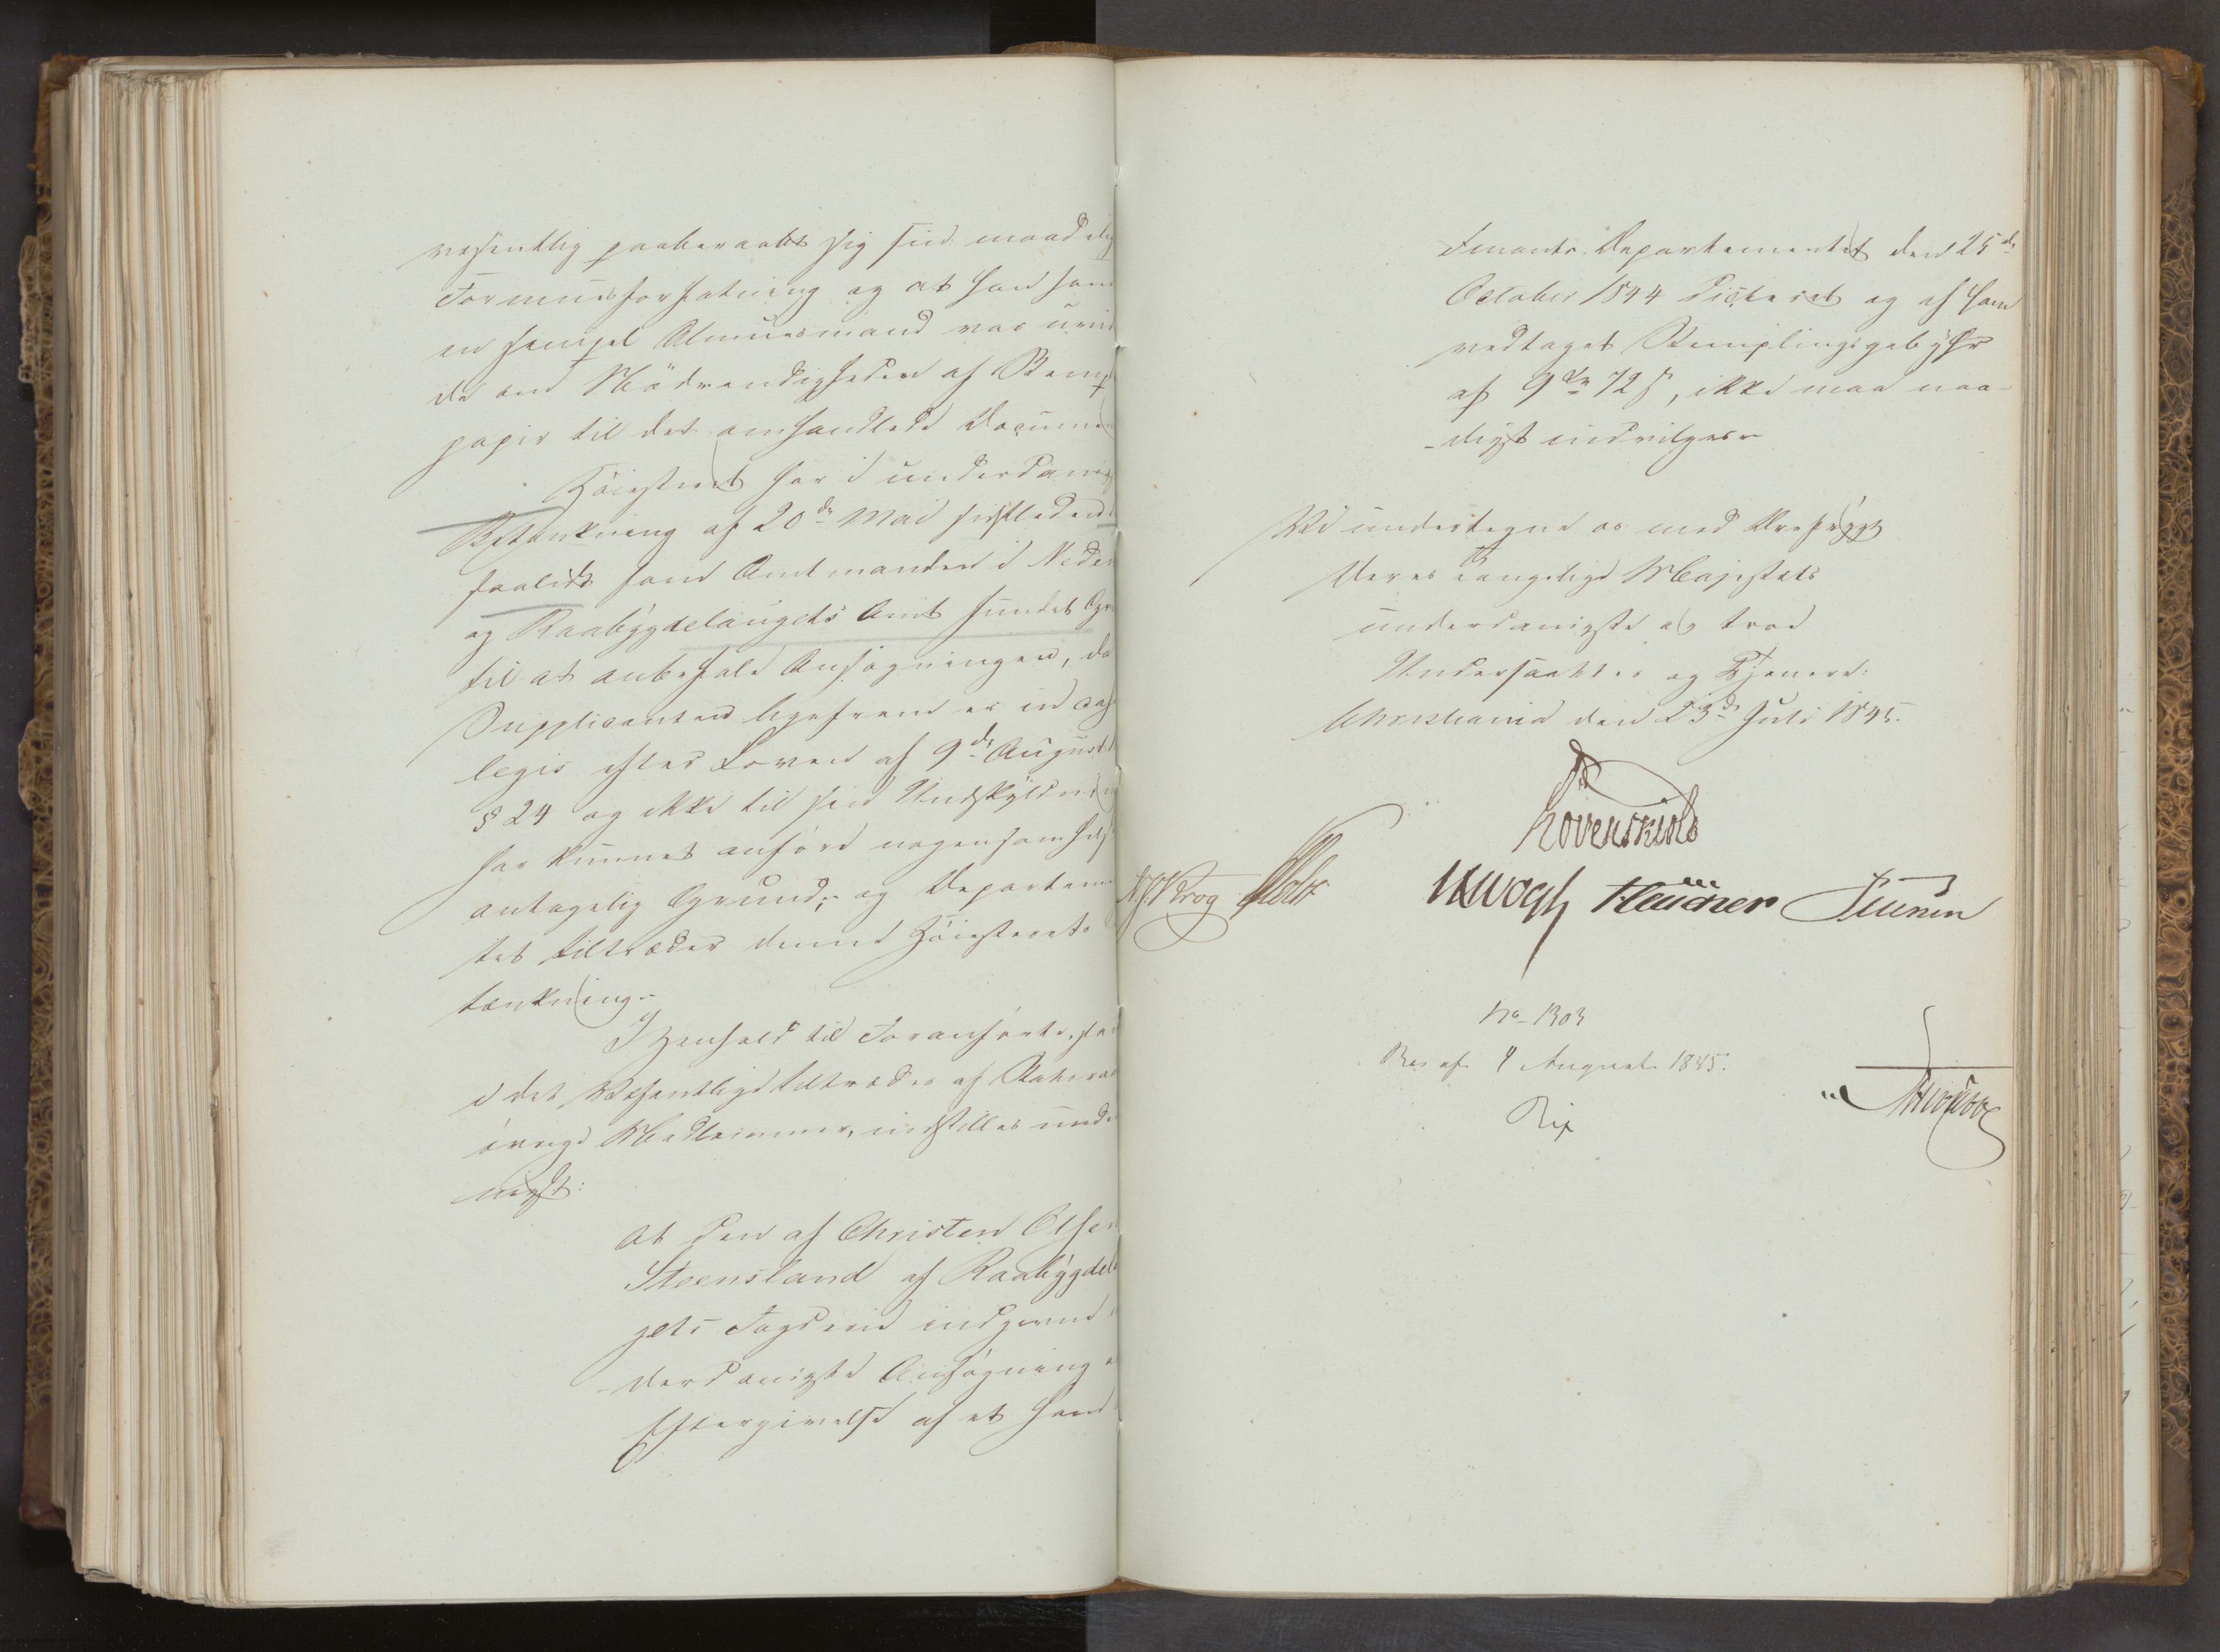 væsentlig paaberaabt sig sin maadelig
Formuesforfatning og at han som
en simpel Almuesmand var uvid
de om Nödvendigheden af Stemp
papir til det omhandlede Documen
Höiesteret har i underdanig
Betænkning af 20de Mai sidstleden
saalidt som Amtmanden i Nede
og Raabÿgdelaugets Amt fundet Gr
til at anbefale Ansögningen, da
Supplicanten ligefrem er in cas
legis efter Loven af 9de August
§ 24 og ikke til sin Undskÿldning
har kunnet anföre nogensomhelst
antagelig Grund; og Departeme
tet tiltræder denne Höiesterets
tænkning.
I Henhold til Foranförte, som
i det Væsentlige tiltrædes af Statsraa
övrige Medlemmer, indstilles unde
nigst:
at den af Christen Olsen
Steensland af Raabÿgdel
gets Fogderie indgivne
derdanigste Ansögning
Eftergivelse af et ham
Finants-Departementet den 25de
October 1844 dicteret og af ham
vedtaget Stemplingsgebÿhr
af 9 72 ß, ikke maa naa-
-digst indvilges.
Vi undertegne os med Ærefrÿgt
Deres Kongelige Majestæts
underdanigste og troe
Undersaatter og Tjenere:
Christiania den 23de Juli 1845.
Løvenskiold
N. J. Krog Holst JHVogh
No 1303
Res af 4 August 1845.